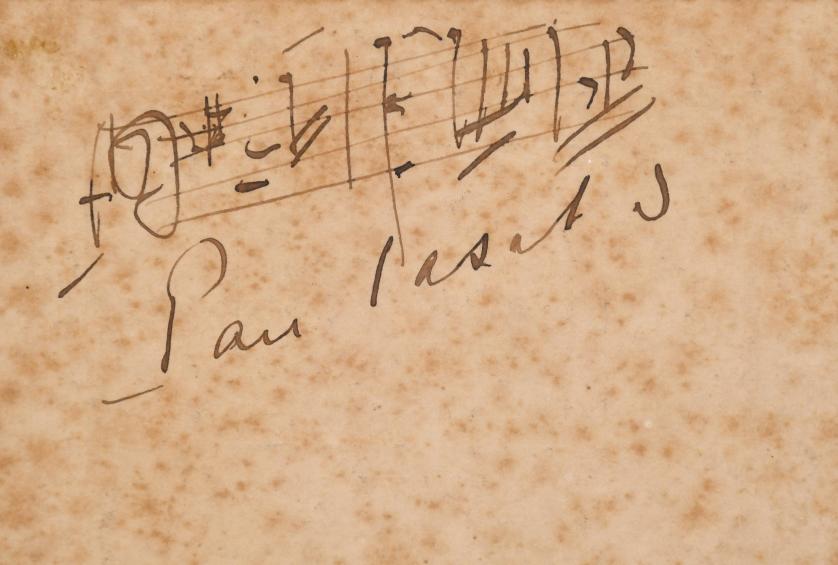 Pau Casals